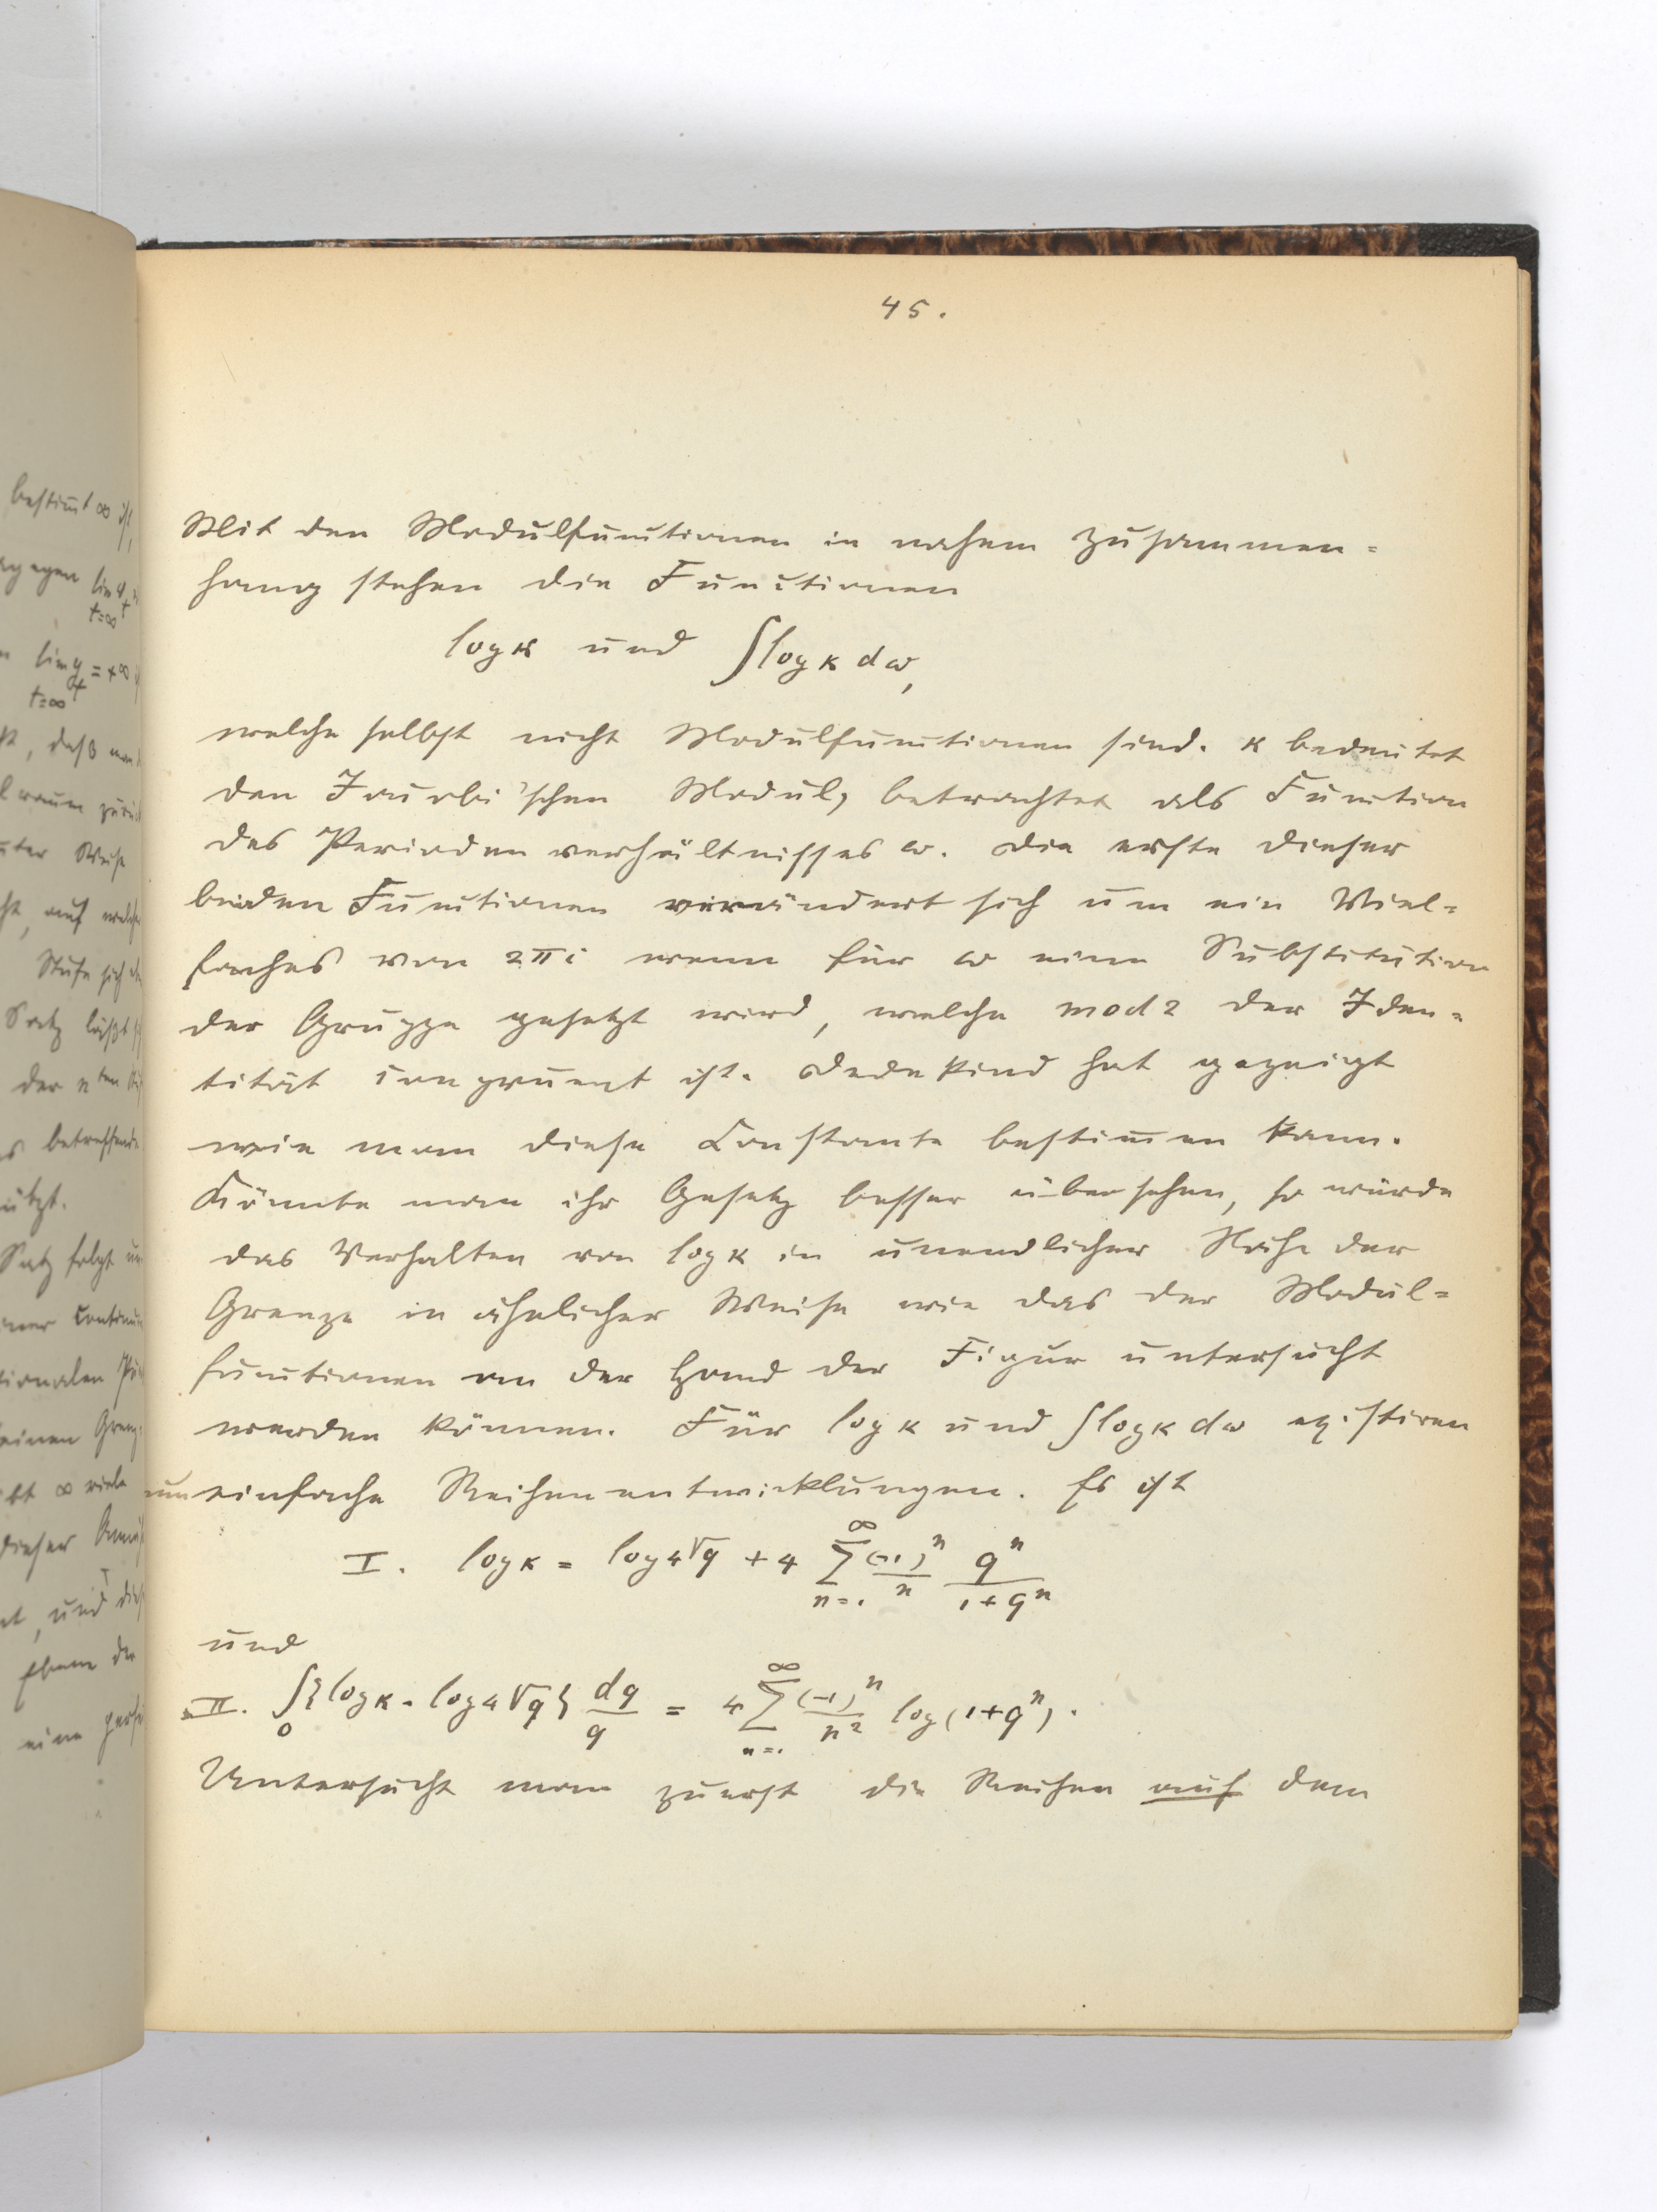 45.
Mit den Modulfunctionen in nahem Zusammen=
hang stehen die Functionen
log κ und ∫log κ dω,
welche selbst nicht Modulfunctionen sind. κ bedeutet
den Jacobi'schen Modul, betrachtet als Function
des Periodenverhältnisses ω. Die erste dieser
beiden Functionen verändert sich um ein Viel=
faches von 2πi wenn für ω eine Substitution
der Gruppe gesetzt wird, welche mod 2 der Iden=
tität congruent ist. Dedekind hat gezeigt
wie man diese Constante bestim̄en kann.
Könnte man ihr Gesetz besser übersehen, so würde
das Verhalten von log κ in unendlicher Nähe der
Grenze in ähnlicher Weise wie das der Modul=
functionen an der Hand der Figur untersucht
werden können. Für log κ und ∫log κ dω existiren
nun einfache Reihenentwicklungen. Es ist
I. log κ = log 4√q + 4 ∑_{n=1}^∞ (-1)^n/n q^n/(1+q^n)
und
II. ∫_0 {log κ - log 4√q} dq/q = 4 ∑_{n=1}^∞ (-1)^n/n² log(1+q^n).
Untersucht man zuerst die Reihen auf dem